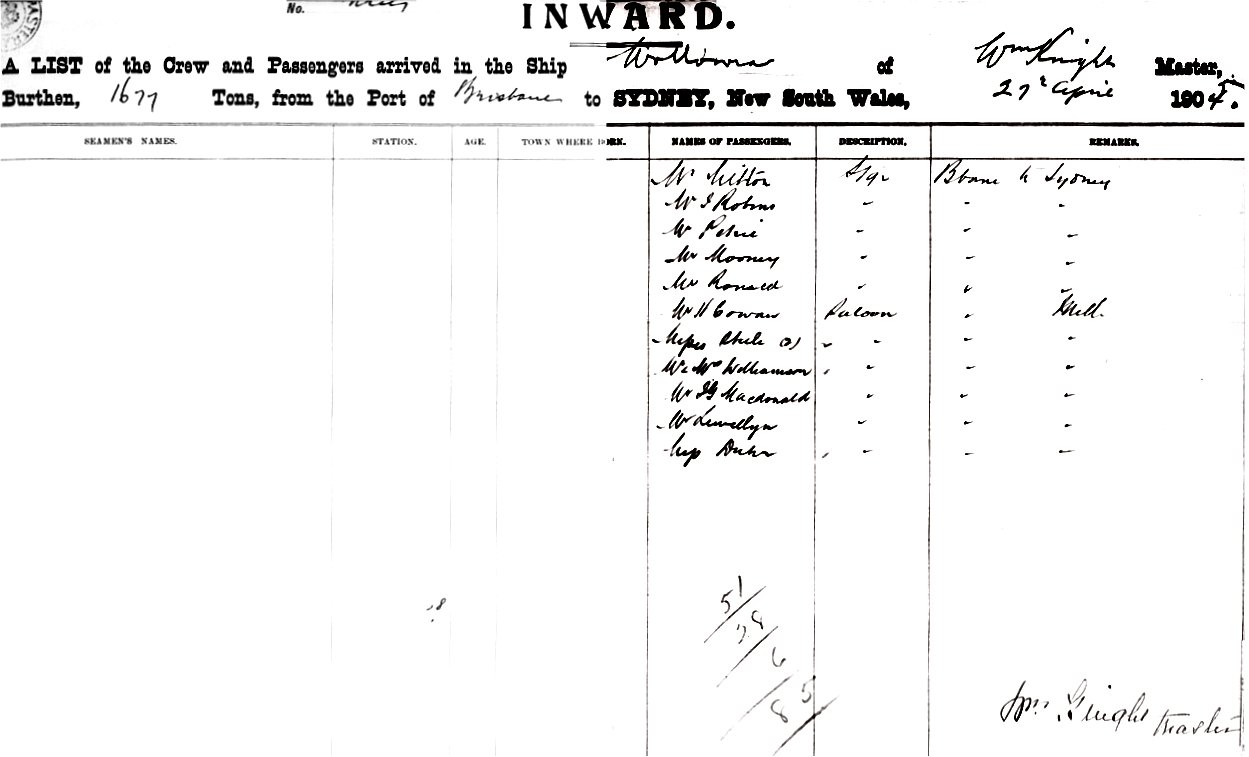 No.
INWARD.
A LIST of the Crew and Passengers arrived in the Ship Wollowra of Wm Knight Master,
Burthen, 1677 Tons, from the Port of Brisbane to SYDNEY, New South Wales, 27th April 1905.
SEAMEN'S NAMES. STATION. AGE. TOWN WHERE BORN. NAMES OF PASSENGERS. DESCRIPTION. REMARKS.
Mr Mitton Stge Bbane to Sydney
Mr J Robins " " "
Mr Petrie " " "
Mr Mooney " " "
Mr Ronald " " "
Mr H Cowan Saloon " Melb.
Misses Steele (2) " " " "
Mr Mrs Williamson " " " "
Mr J G Macdonald " " "
Mr Llewellyn " " "
Miss " " " "
51
28
6
85
Wm Knight Master